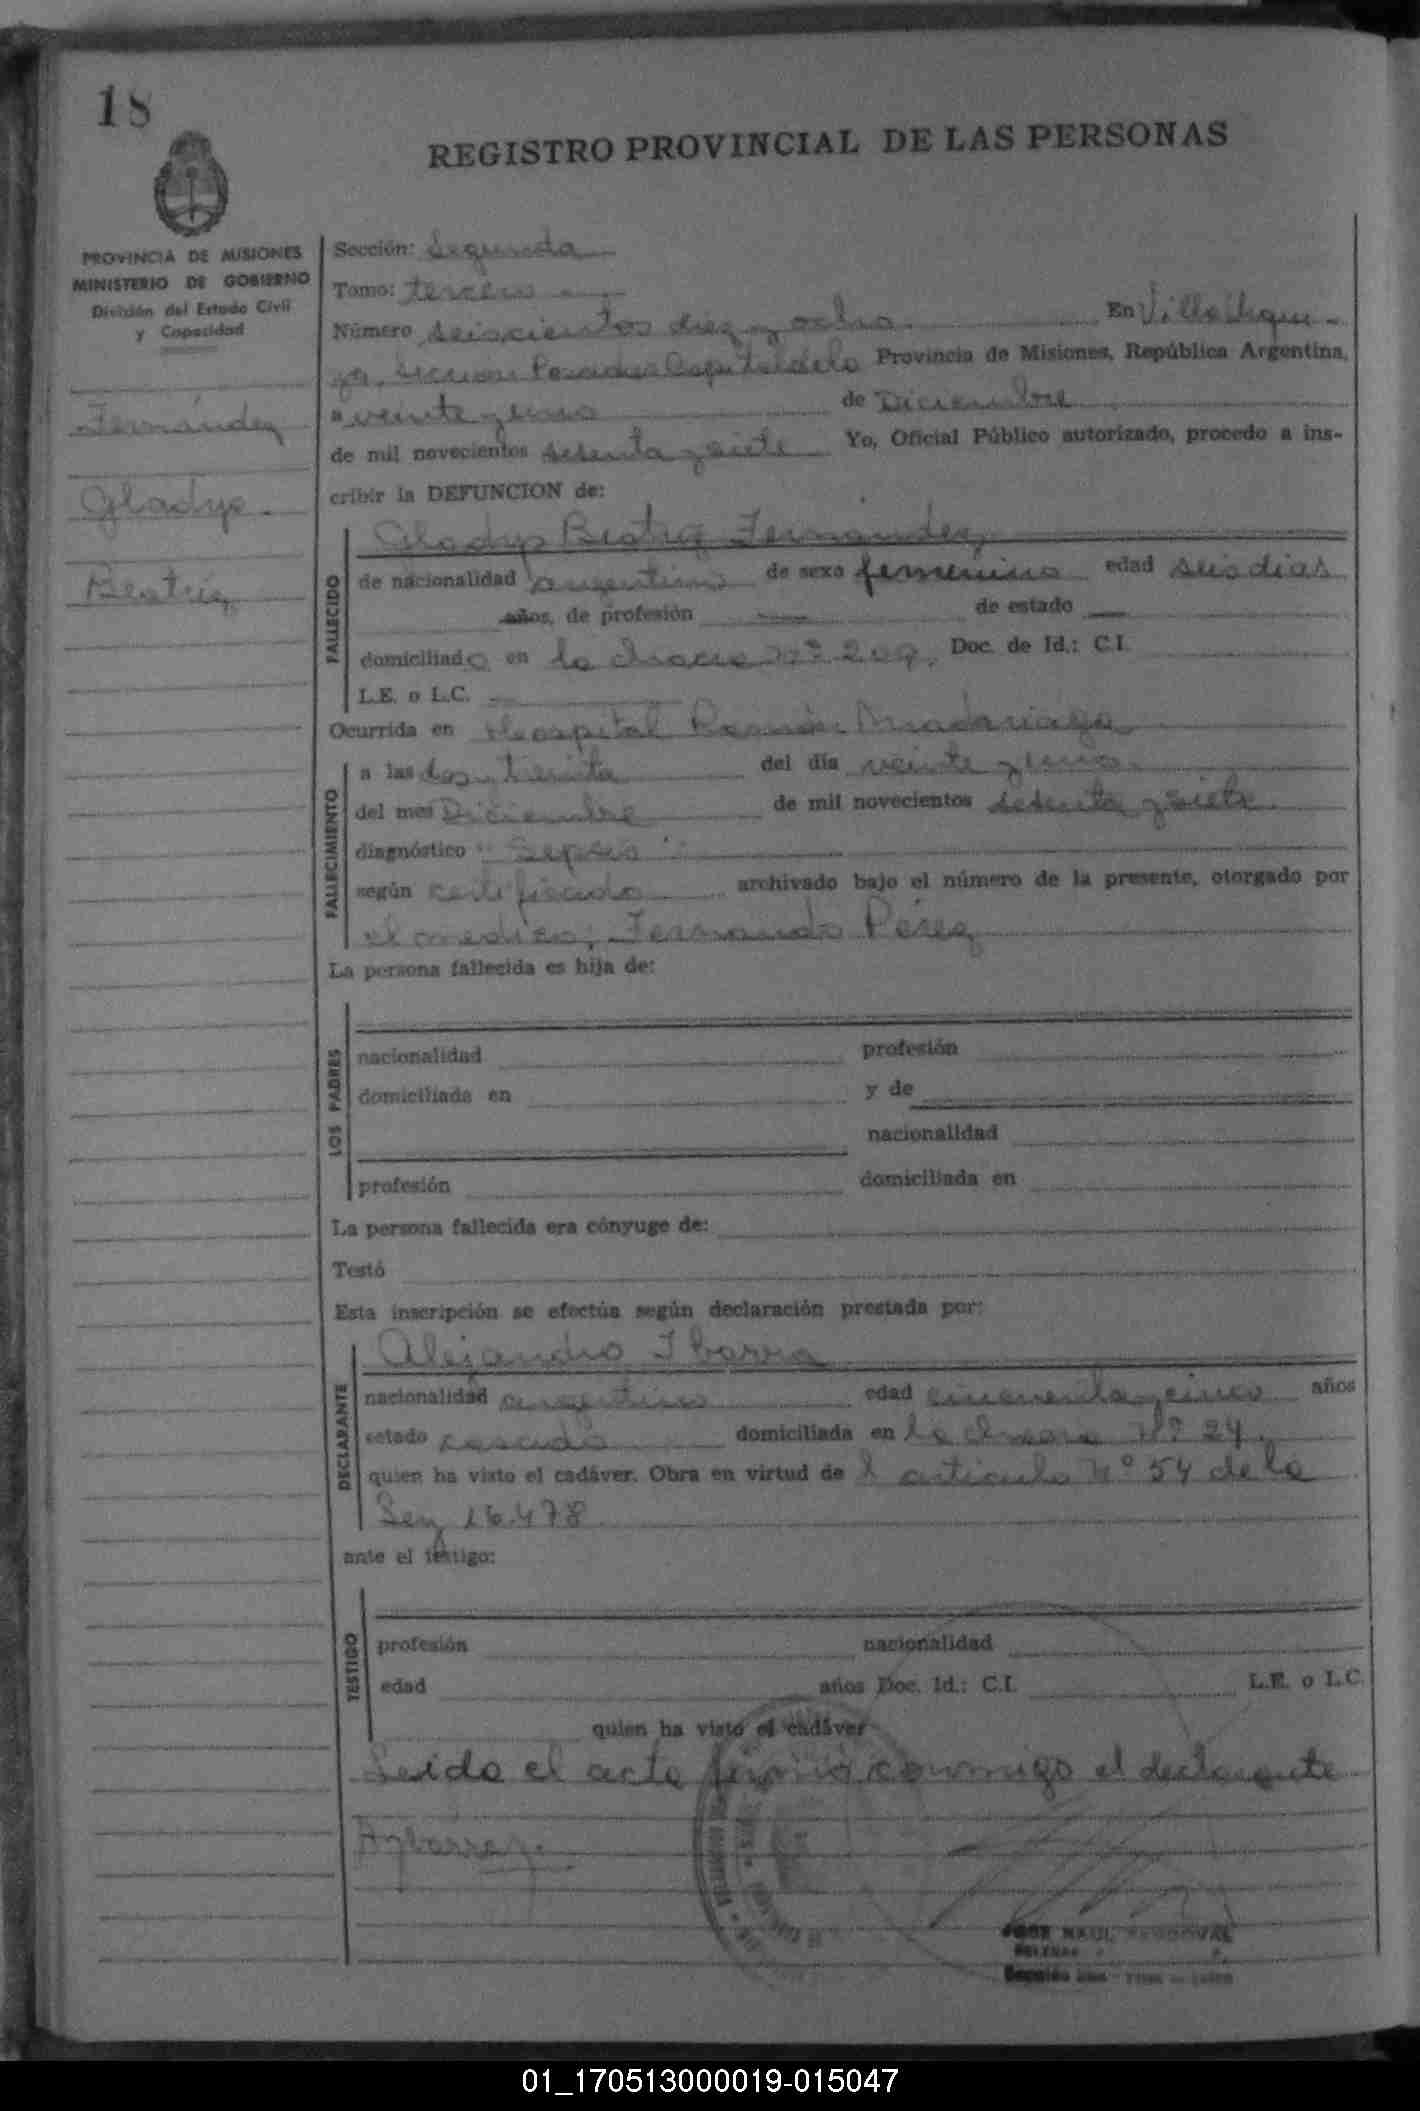 18
REGISTRO PROVINCIAL DE LAS PERSONAS
PROVINCIA DE MISIONES
MINISTERIO DE GOBIERNO
División del Estado Civil
y Capacidad
Fernández
Gladys.
Beatriz
Sección: Segunda
Tomo: tercero
Número seiscientos diez y ocho. En Villa Urqui-
za, Seccion Posadas Capital de la Provincia de Misiones, República Argentina,
a veinte y uno de Diciembre
de mil novecientos setenta y siete Yo, Oficial Público autorizado, procedo a ins-
cribir la DEFUNCION de:
Gladys Beatriz Fernández
FALLECIDO
de nacionalidad argentina de sexo femenino edad seis días
años, de profesión — de estado —
domiciliado en la chacra Nº 209. Doc. de Id.: C.I.
L.E. o L.C.
Ocurrida en Hospital Ramón Madariaga
FALLECIMIENTO
a las dos y treinta del día veinte y uno.
del mes Diciembre de mil novecientos setenta y siete
diagnóstico "Sepsis"
según certificado archivado bajo el número de la presente, otorgado por
el medico; Fernando Pérez
La persona fallecida es hija de:
LOS PADRES
nacionalidad profesión
domiciliada en y de
nacionalidad
profesión domiciliada en
La persona fallecida era cónyuge de:
Testó
Esta inscripción se efectúa según declaración prestada por:
Alejandro Ibarra
DECLARANTE
nacionalidad argentino edad cincuenta y cinco años
estado casado domiciliada en la chacra Nº 24.
quien ha visto el cadáver. Obra en virtud de l articulo Nº 54 de la
Ley 16.478.
ante el testigo:
TESTIGO
profesión nacionalidad
edad años Doc. Id.: C.I. L.E. o L.C.
quien ha visto el cadáver
Leida el acta firmó conmigo el declarante
JOSE RAUL SANDOVAL
01_170513000019-015047